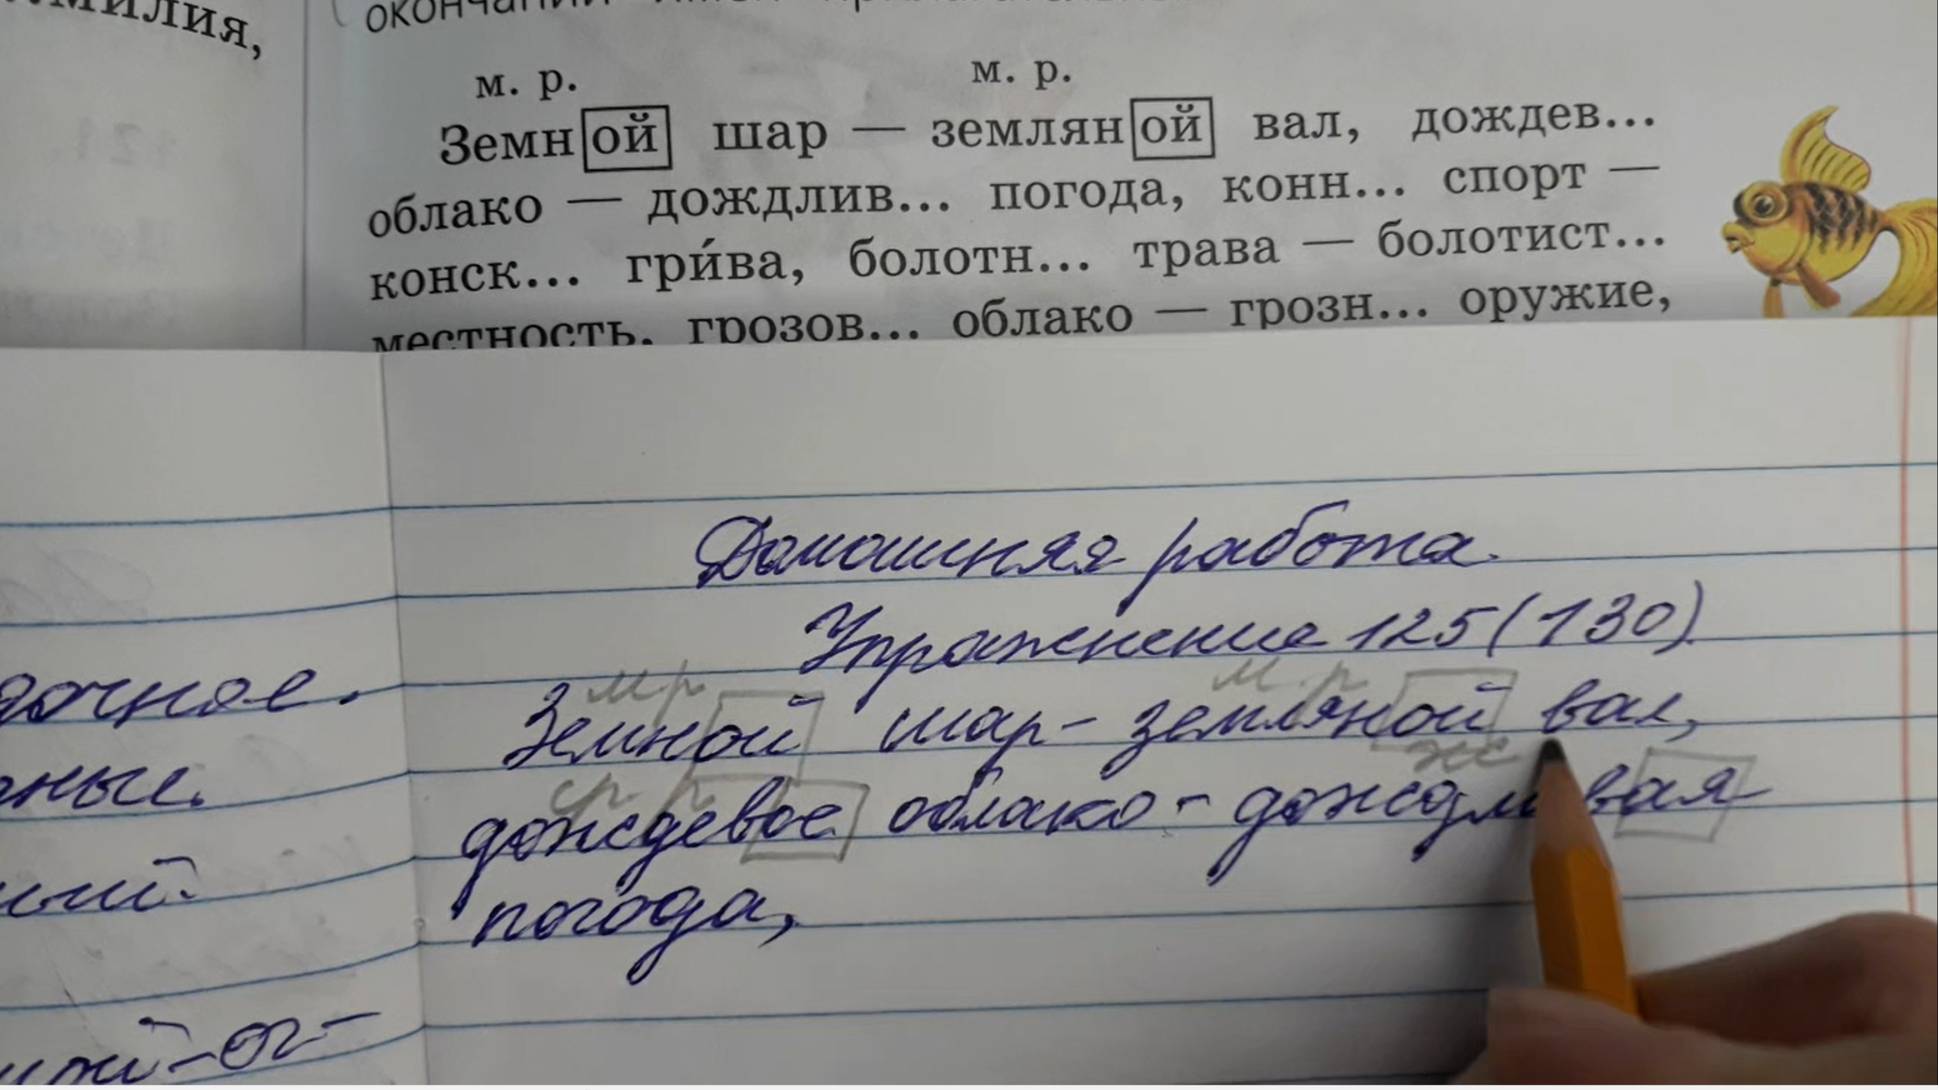 милия,
окончаний имён прилагательных
м. р. м. р.
Земной шар — земляной вал, дождев...
облако — дождлив... погода, конн... спорт —
конск... гри́ва, болотн... трава — болотист...
местность, грозов... облако — грозн... оружие,
Домашняя работа.
Упражнение 125(130)
м р м. р
Земной шар - земляной вал,
ср. р ж
дождевое облако - дождливая
погода,